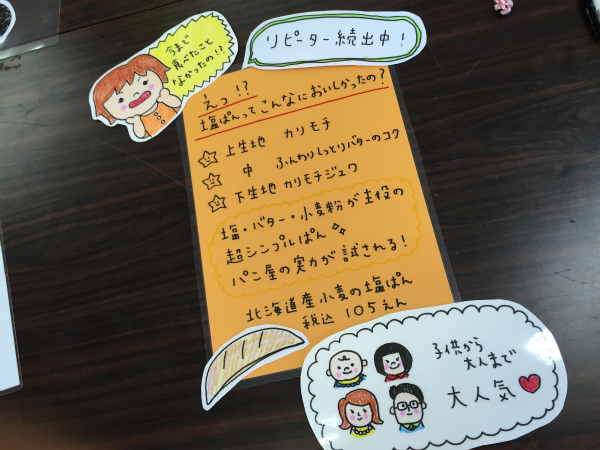 リピーター続出中!
今まで
食べたこと
なかったの!?
えっ!?
塩ぱんってこんなにおいしかったの?
上生地 カリモチ
中 ふんわりしっとりバターのコク
下生地 カリモチジュワ
塩・バター・小麦粉が主役の
超シンプルぱん
パン屋の実力が試される!
北海道産小麦の塩ぱん
税込 105えん
子供から
大人まで
大人気